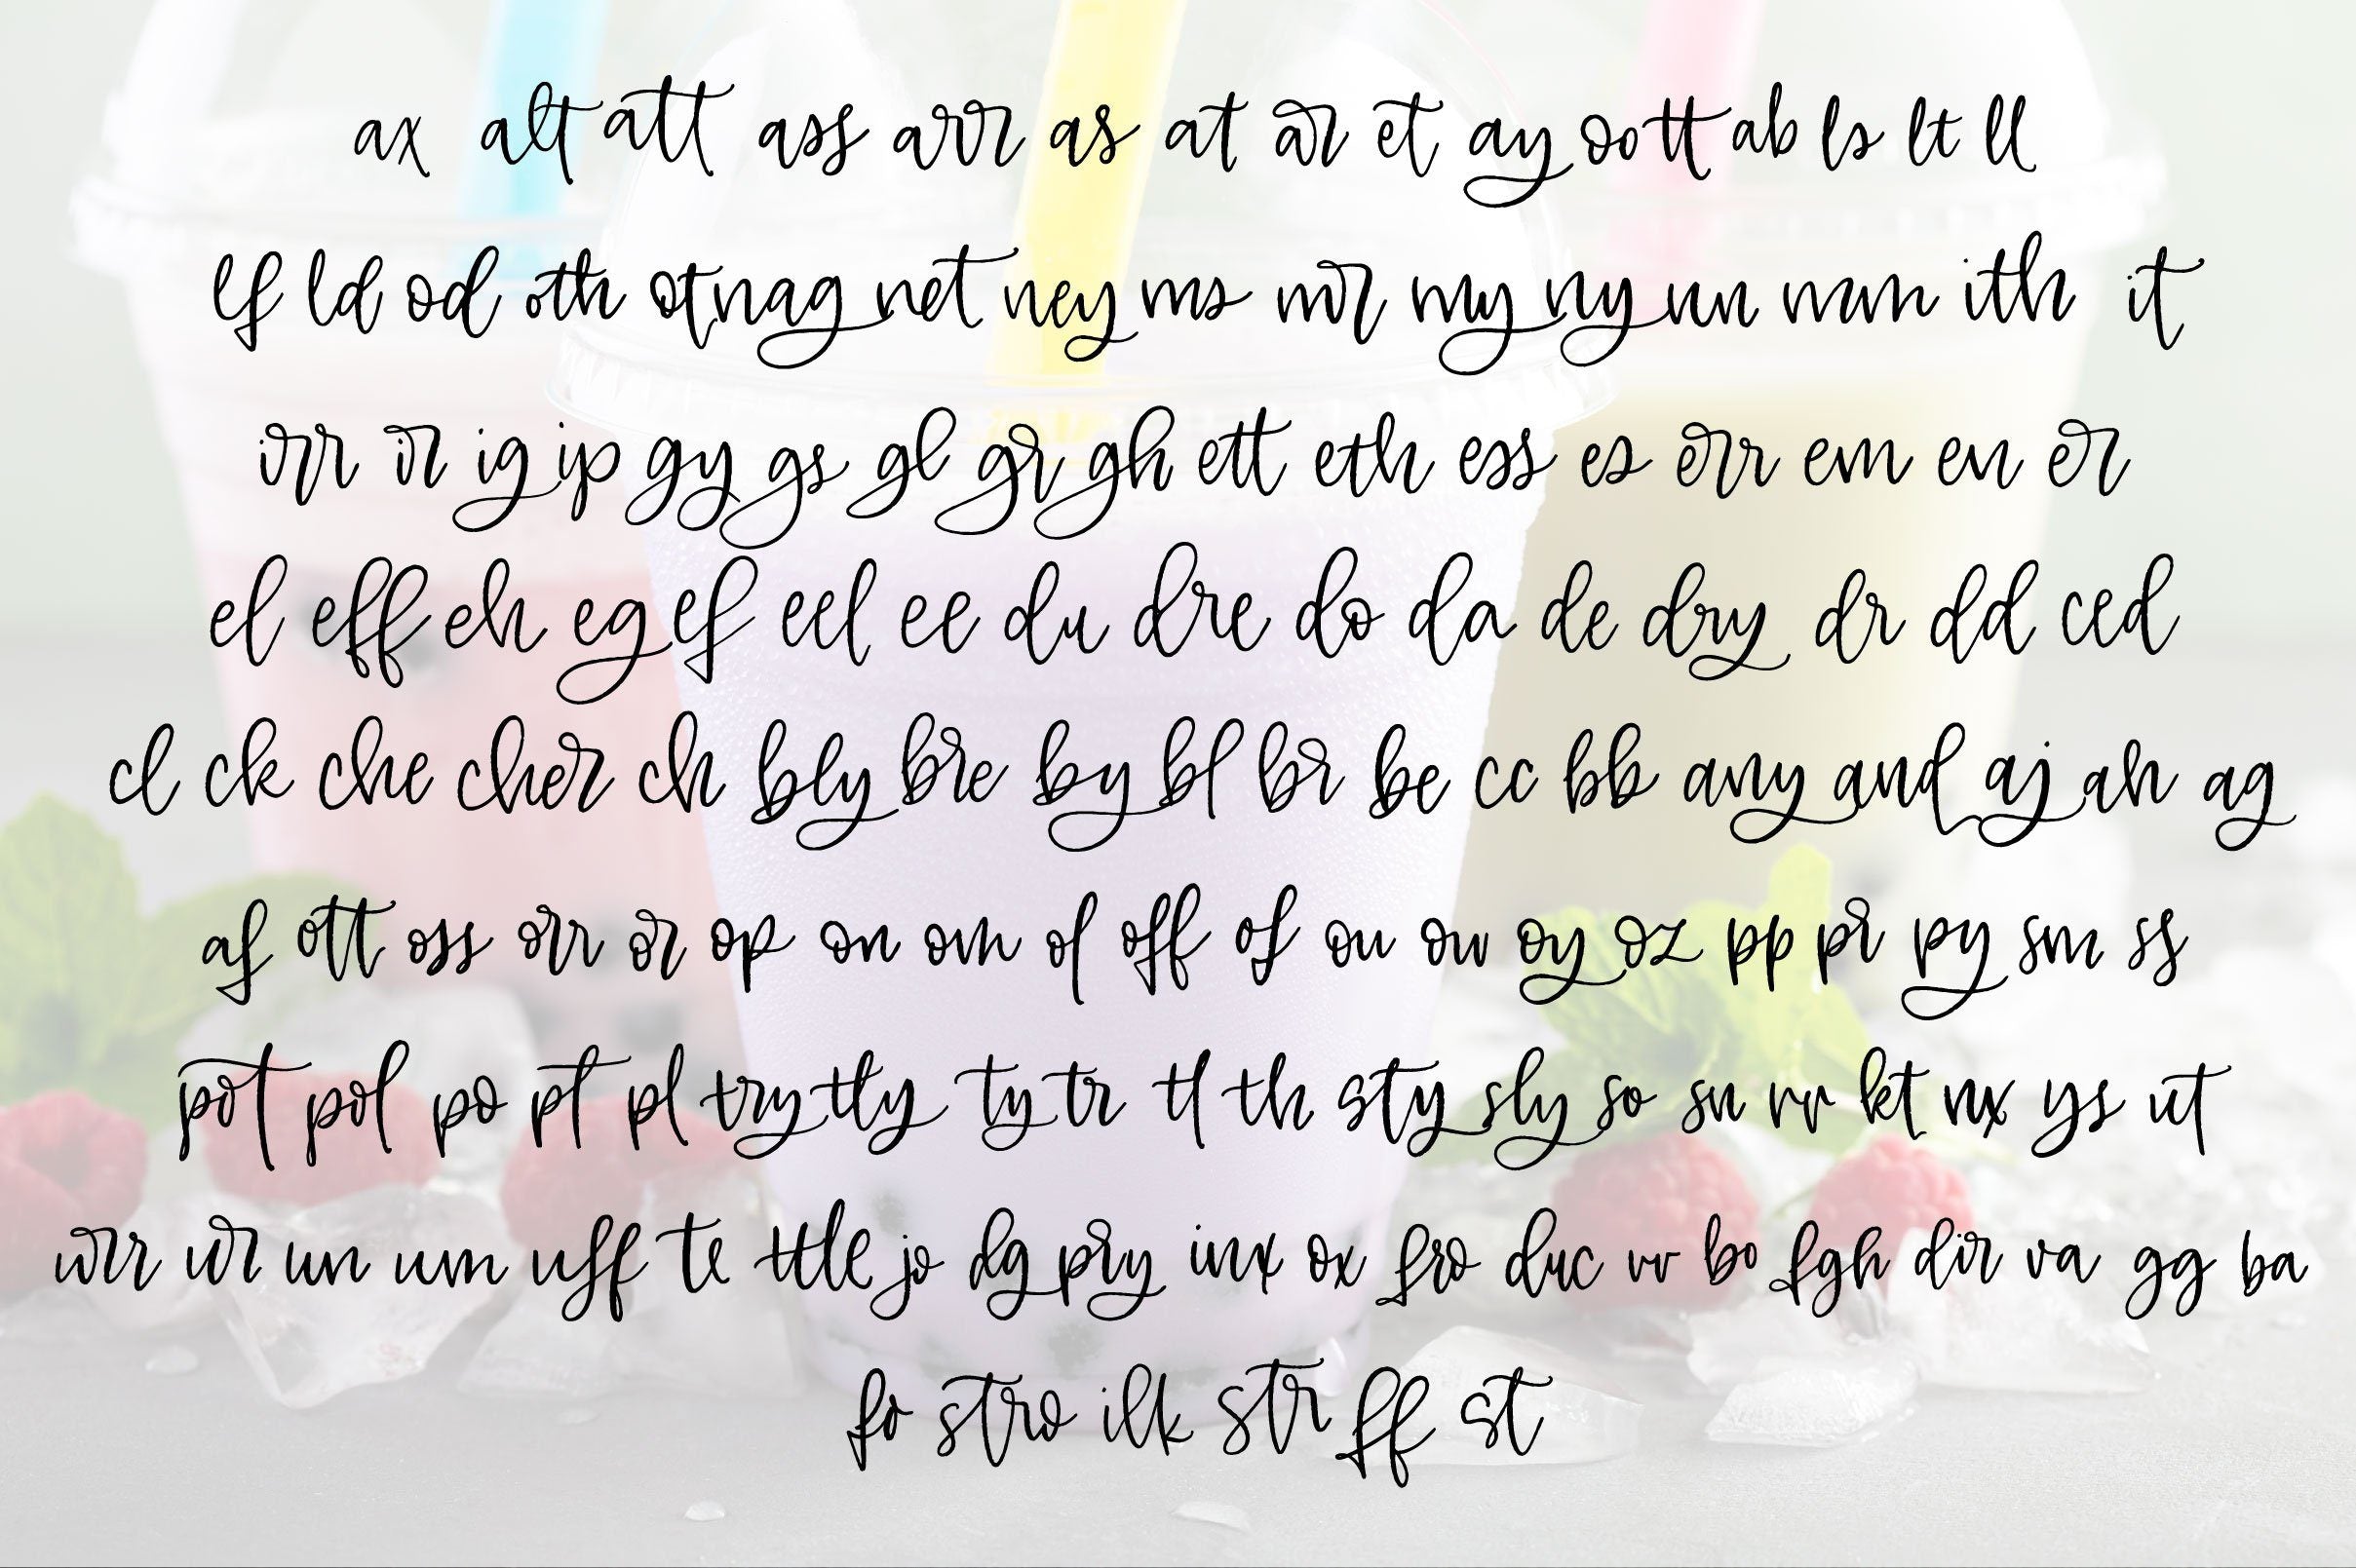 ax alt att ass arr as at ar et ay oo tt ab ls lt ll
lf ld od oth ot nag net ney ms mr my ny nn mm ith it
irr ir ig ip gy gs gl gr gh ett eth ess es err em en er
el eff eh eg ef eel ee du dre do da de dry dr dd ced
cl ck che cher ch bly bre by bl br be cc bb any and aj ah ag
af ott oss orr or op on om ol off of ou ow oy oz pp pr py sm ss
pot pol po pt pl try tly ty tr tl th sty sly so sn rr kt nx ys ut
urr ur un um uff te ttle jo dg pry inx ox fro duc vv bo fgh dir va gg ba
fo stro ilk str ff st